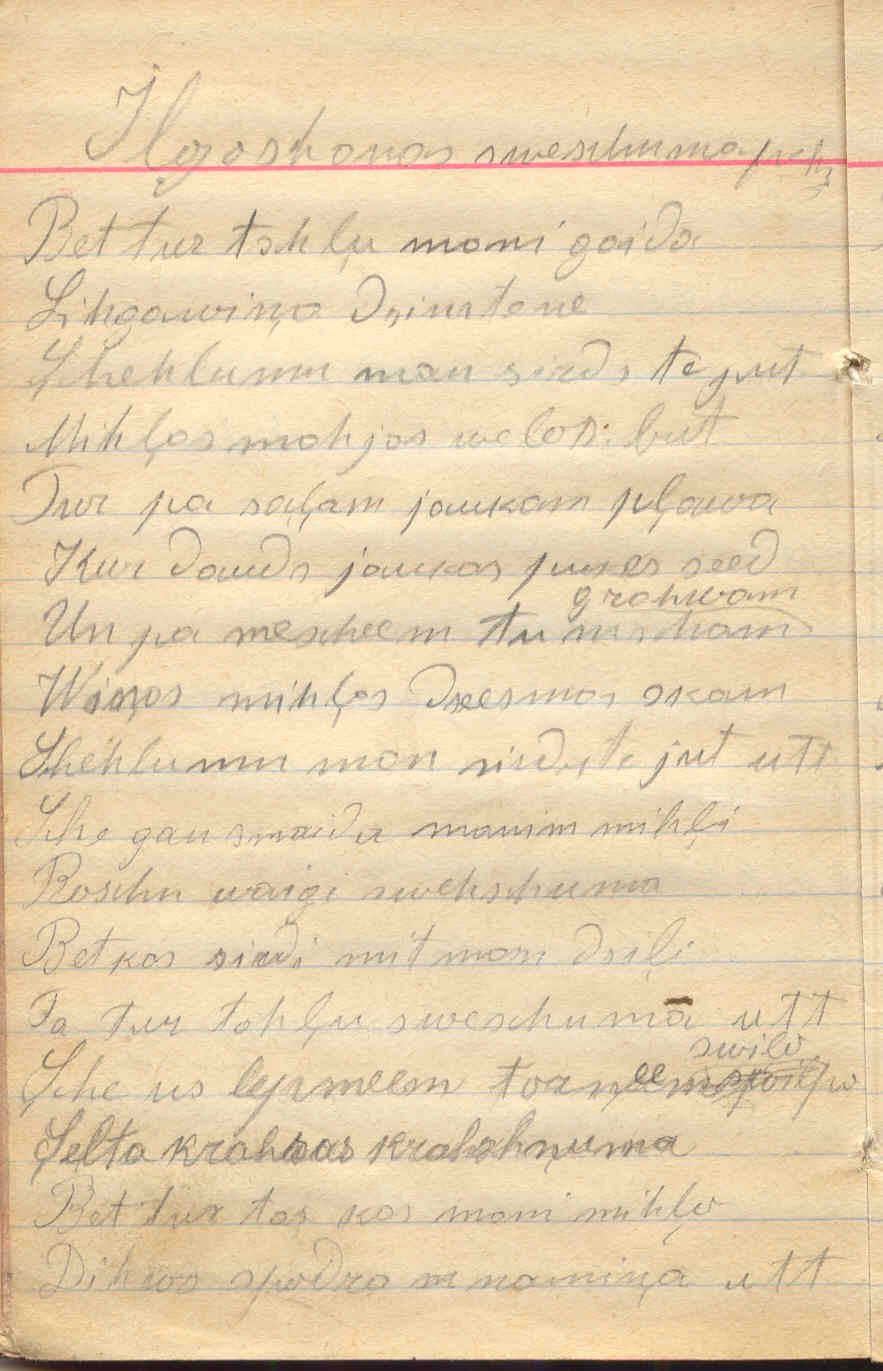 Ilgoshanas sweschuma pehz
Bet tur tahļu mani gaida
Lihgawiņa dsimtene
Schehlumu man sirds te jut
Mihļas mahjas welos but
Tur pa saļam jaukam pļawa
Kur dauds jaukas pukes seed
Un pa mescheem tumscham
grahwam
Wiņas mihļas dseesmas skam
Schehlumu man sirds te jut utt
Sche gan smaida manim mihļi
Roschu waigi swehschuma
Bet kas sirdi mit man dsiļi
Ta tur tahļu sweschumā utt
Sche us lepneem torneem
swilo
Selta krahsas krahschņuma
Bet tur tas kas mani mihļo
Dihwo spodra namiņa utt